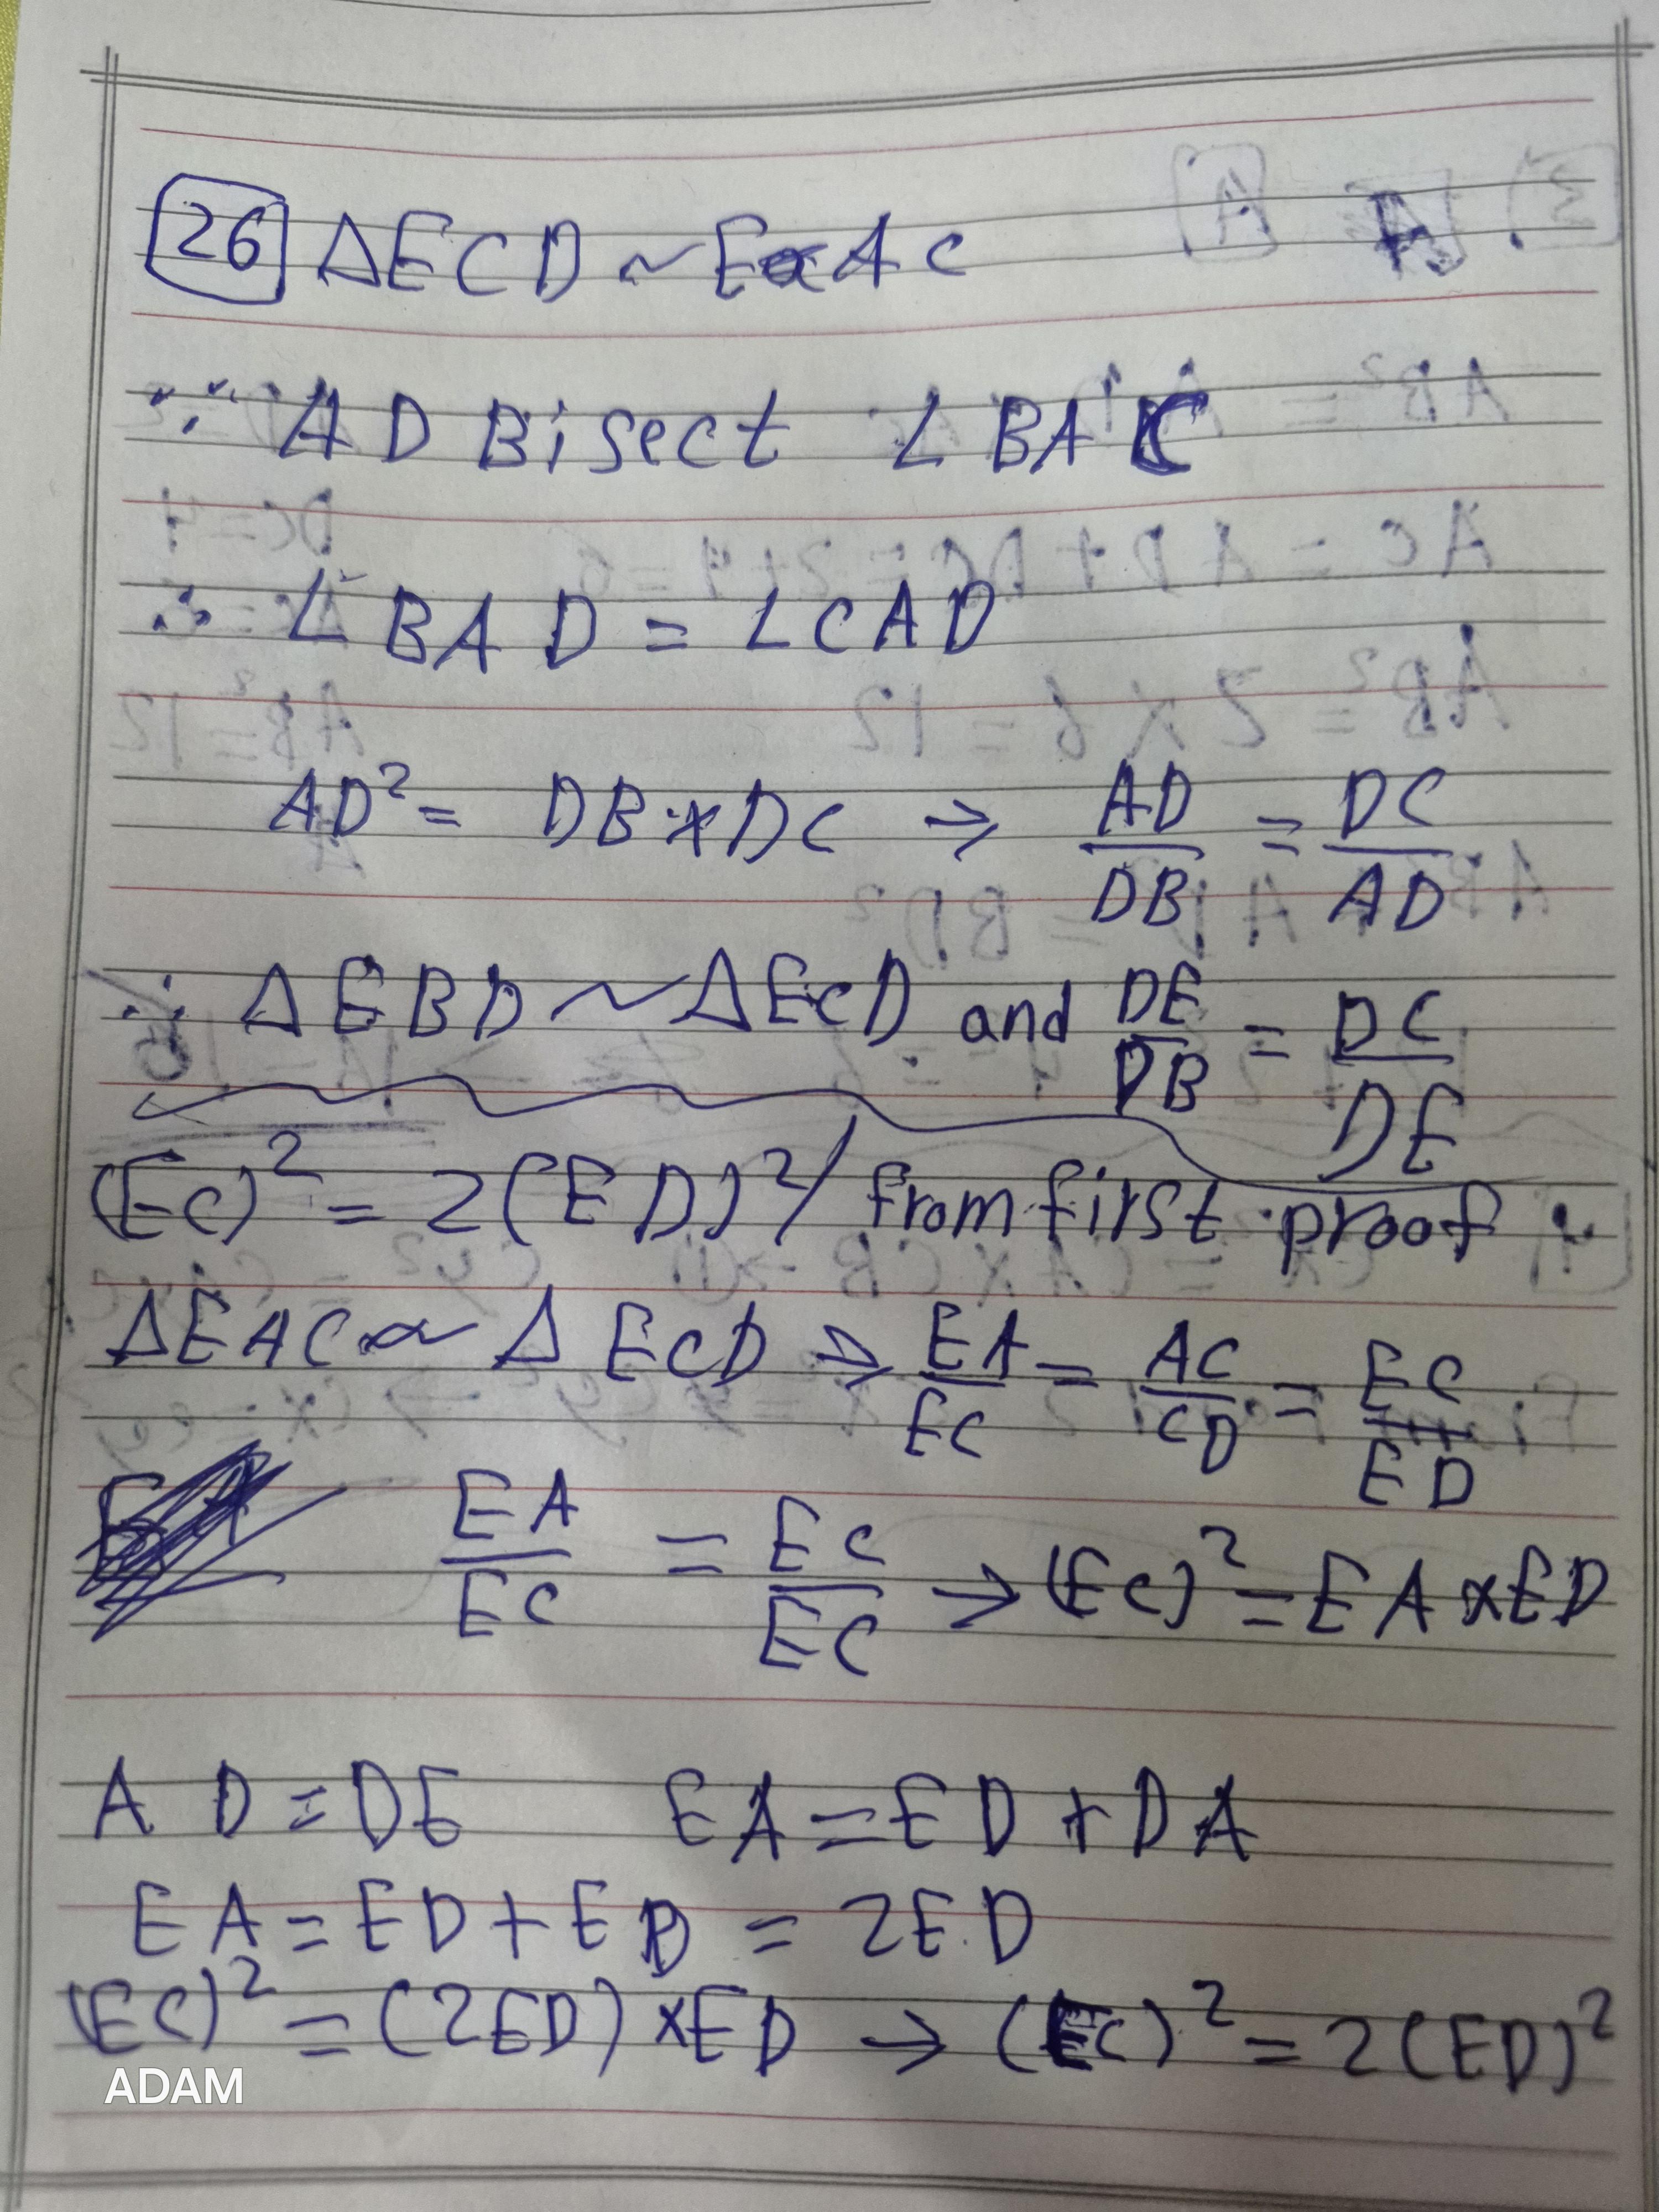 26 ΔECD ~ EAC
∵ AD Bisect ∠BAC
∴ ∠BAD = ∠CAD
AD² = DB × DC → AD/DB = DC/AD
∴ ΔEBD ~ ΔECD and DE/DB = DC/DE
(EC)² = 2(ED)² / from first proof
ΔEAC ~ ΔECD → EA/EC = AC/CD = EC/ED
EA/EC = EC/EC → (EC)² = EA × ED
AD = DE EA = ED + DA
EA = ED + ED = 2ED
(EC)² = (2ED) × ED → (EC)² = 2(ED)²
ADAM